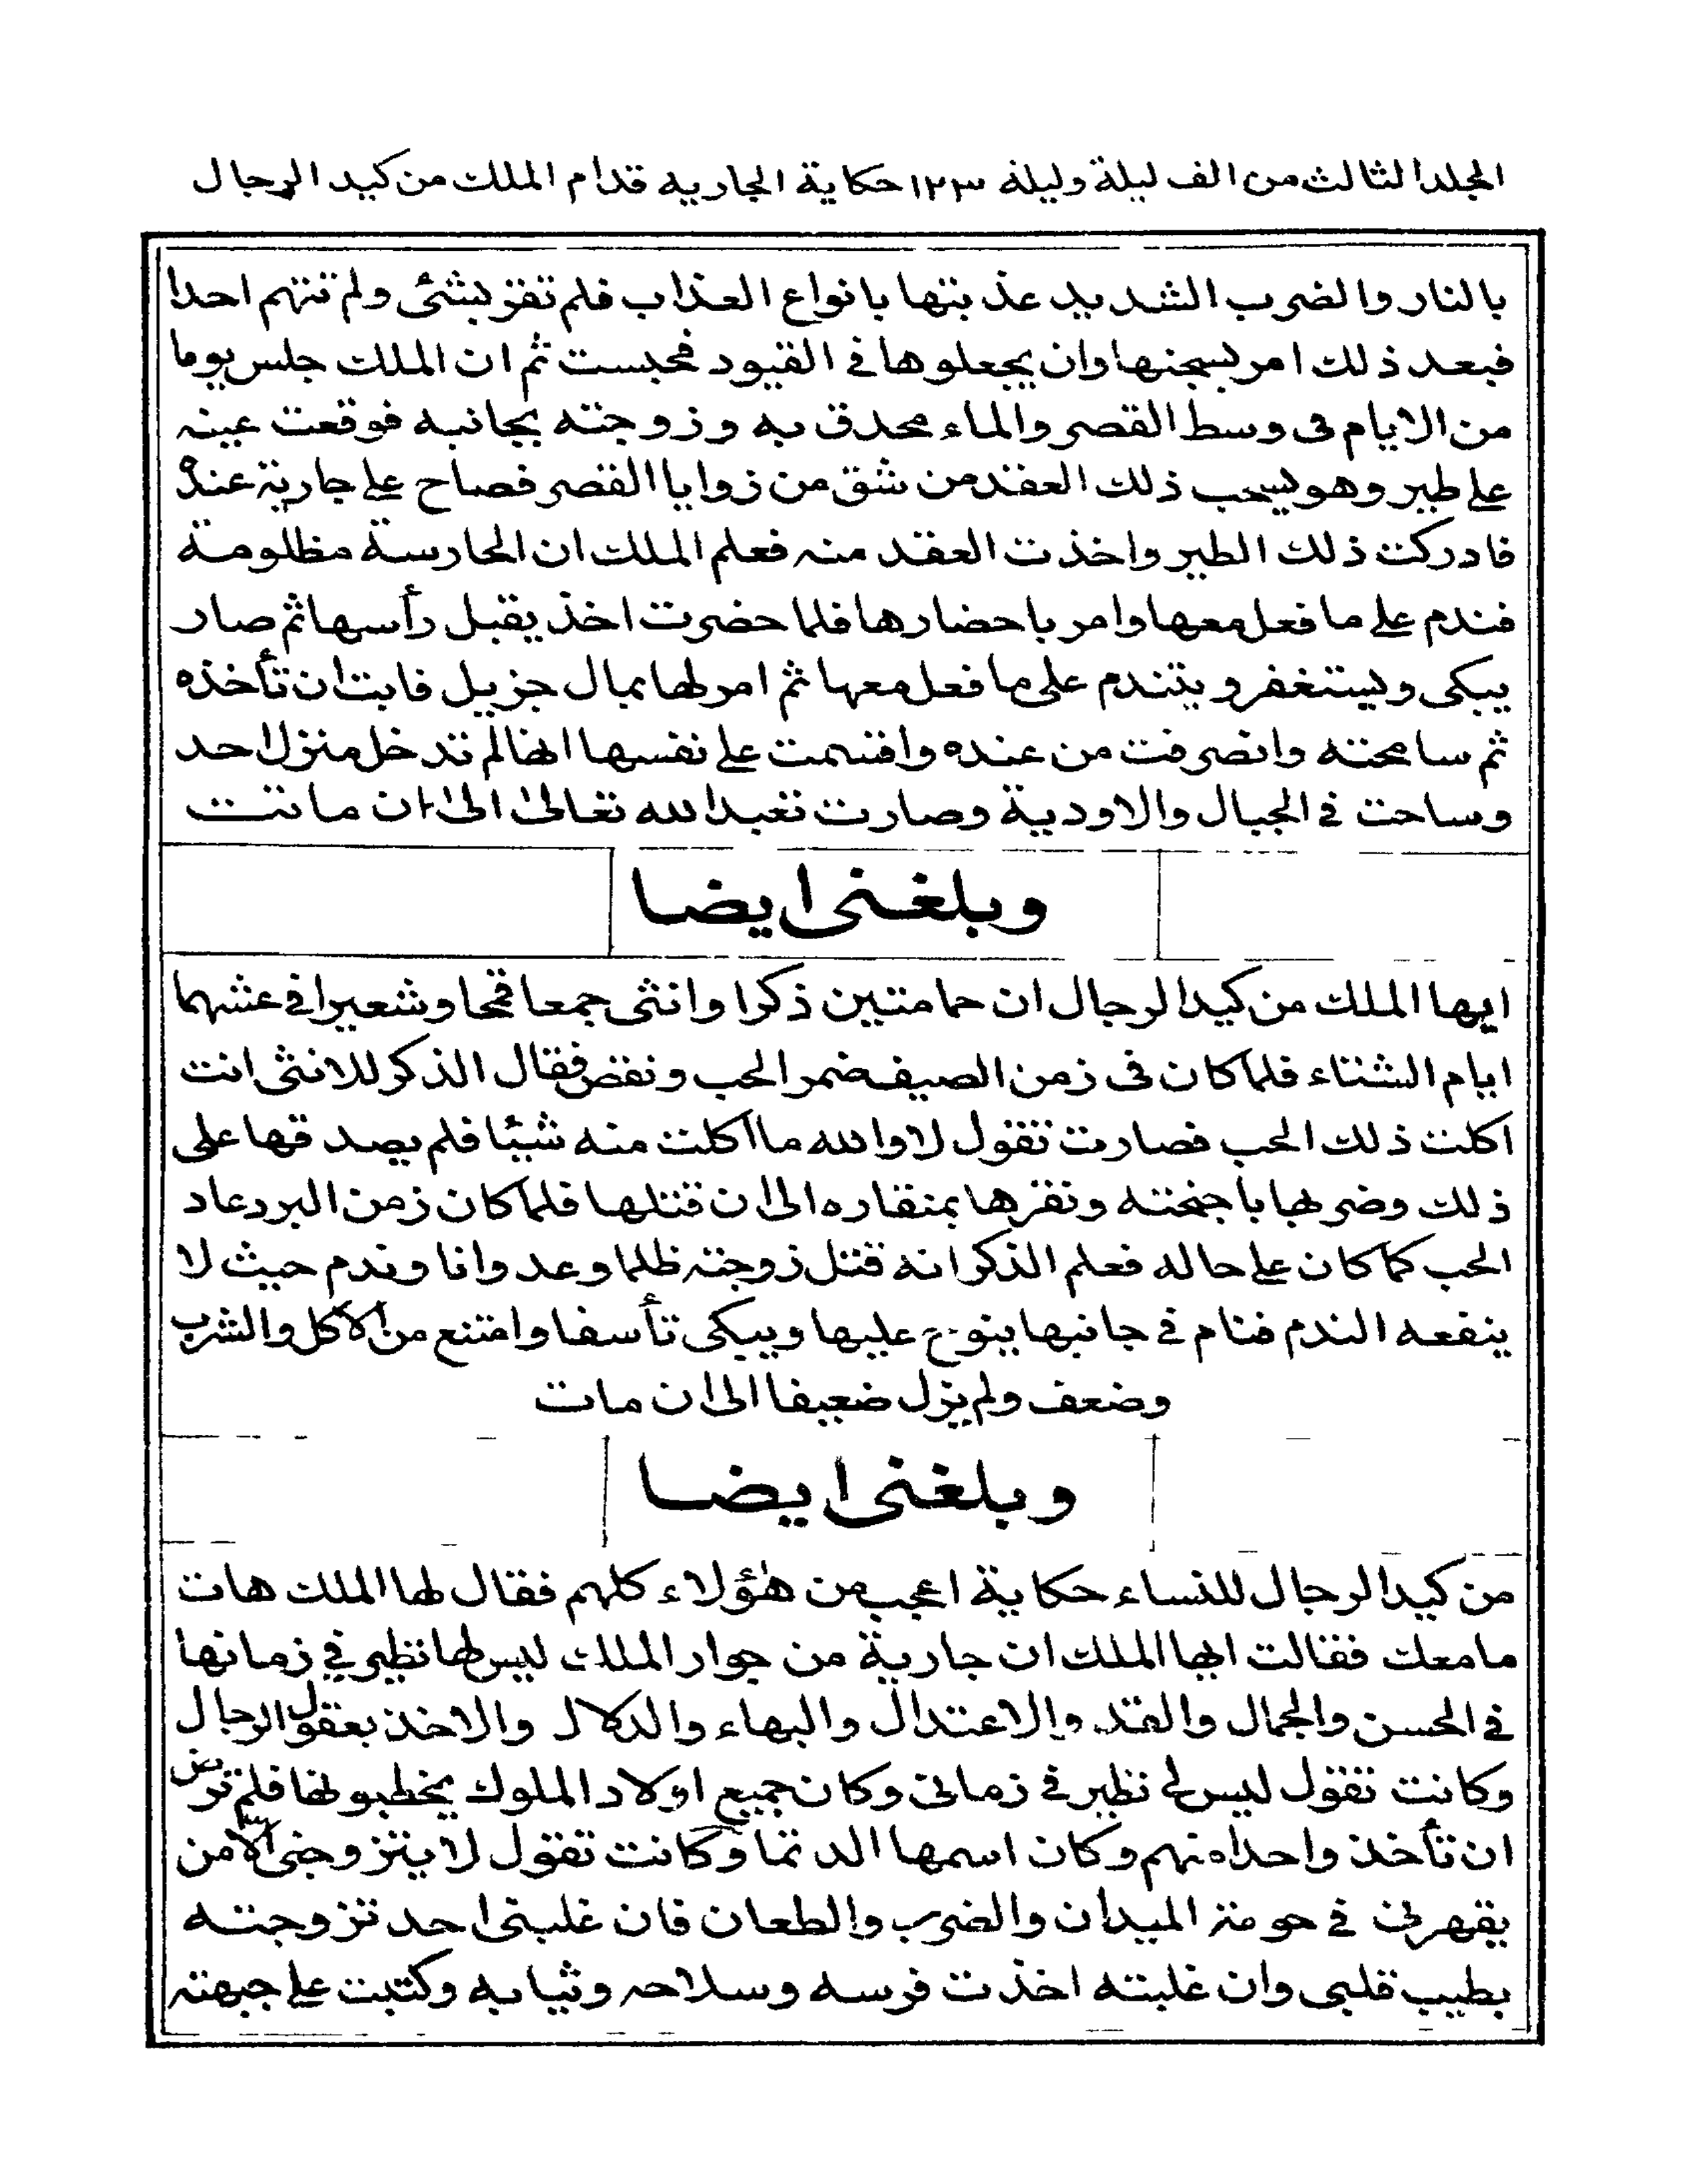 المجلد الثالث من الف ليلة وليلة ١٢٣ حكاية الجاريه قدام الملك من كيد الرجال
بالنار والضرب الشديد عذبتها بانواع العذاب فلم تقر بشئ ولم تتهم احدا
فبعد ذلك امر بسجنها وان يجعلوها في القيود فحبست ثم ان الملك جلس يوما
من الايام فى وسط القصر والماء محدق به وزوجته بجانبه فوقعت عينه
على طير وهو يسحب ذلك العقد من شق من زوايا القصر فصاح على جارية عنده
فادركت ذلك الطير واخذت العقد منه فعلم الملك ان الحارسة مظلومة
فندم على ما فعل معها وامر باحضارها فلما حضرت اخذ يقبل رأسها ثم صار
يبكى ويستغفر ويتندم على ما فعل معها ثم امر لها بمال جزيل فابت ان تأخذه
ثم سامحته وانصرفت من عنده واقسمت على نفسها انها لم تدخل منزل احد
وساحت في الجبال والاودية وصارت تعبد الله تعالى الى ان ماتت
وبلغنى ايضا
ايها الملك من كيد الرجال ان حمامتين ذكرا وانثى جمعا قمحا وشعيرا في عشهما
ايام الشتاء فلما كان فى زمن الصيف ضمر الحب ونقص فقال الذكر للانثى انت
اكلت ذلك الحب فصارت تقول لا والله ما اكلت منه شيئا فلم يصدقها على
ذلك وضربها باجنحته ونقرها بمنقاره الى ان قتلها فلما كان زمن البرد عاد
الحب كما كان على حاله فعلم الذكر انه قتل زوجته ظلما وعدوانا وندم حيث لا
ينفعه الندم فنام في جانبها ينوح عليها ويبكى تأسفا وامتنع من الاكل والشرب
وضعف ولم يزل ضعيفا الى ان مات
وبلغنى ايضا
من كيد الرجال للنساء حكاية اعجب من هؤلاء كلهم فقال لها الملك هات
ما معك فقالت ايها الملك ان جارية من جوار الملك ليس لها نظير في زمانها
في الحسن والجمال والقد والاعتدال والبهاء والدلال والاخذ بعقول الرجال
وكانت تقول ليس لي نظير في زمانى وكان جميع اولاد الملوك يخطبونها فلم ترض
ان تأخذ واحدا منهم وكان اسمها الدتما وكانت تقول لا يتزوجنى الا من
يقهرنى في حومة الميدان والضرب والطعان فان غلبنى احد تزوجته
بطيب قلبى وان غلبته اخذت فرسه وسلاحه وثيابه وكتبت على جبهته